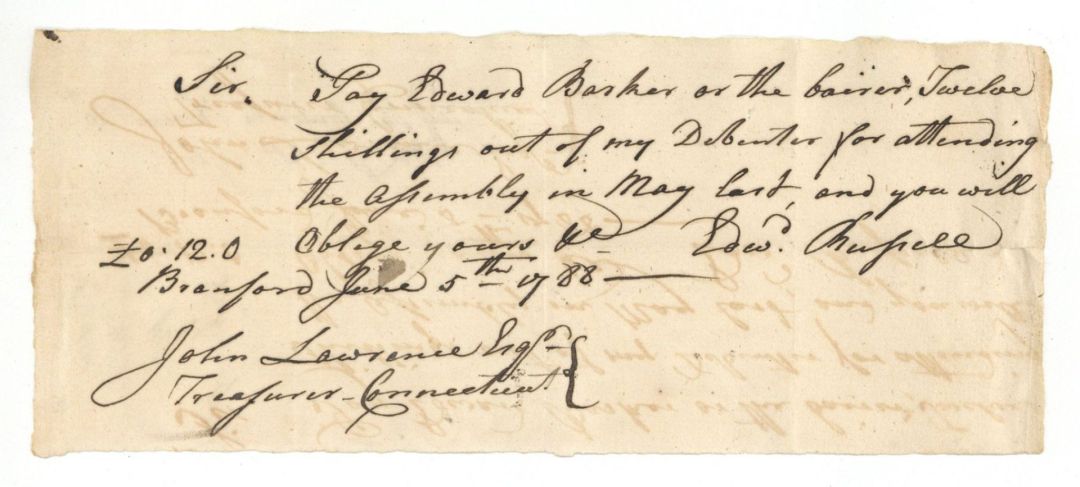 Sir. Pay Edward Barker or the bairer, Twelve
shillings out of my Debenter for attending
the Assembly in May last, and you will
£0.12.0 Oblege yours &c Edwd. Russell
Branford June 5th 1788
John Lawrence Esqr.
Treasurer Connecticut